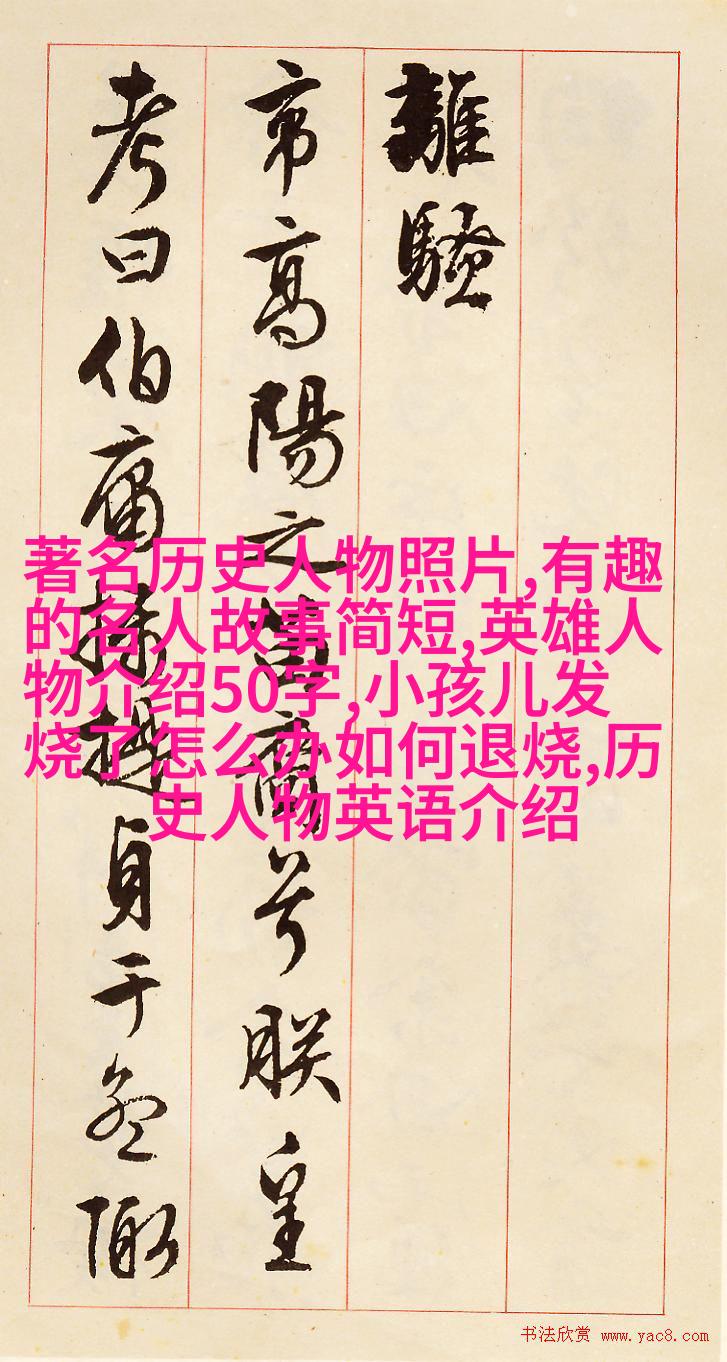 離騷
帝高陽之苗裔兮朕皇
考曰伯庸攝提貞于孟陬
著名历史人物照片,有趣
的名人故事简短,英雄人
物介绍50字,小孩儿发
烧了怎么办如何退烧,历
史人物英语介绍
书法欣赏 www.yac8.com